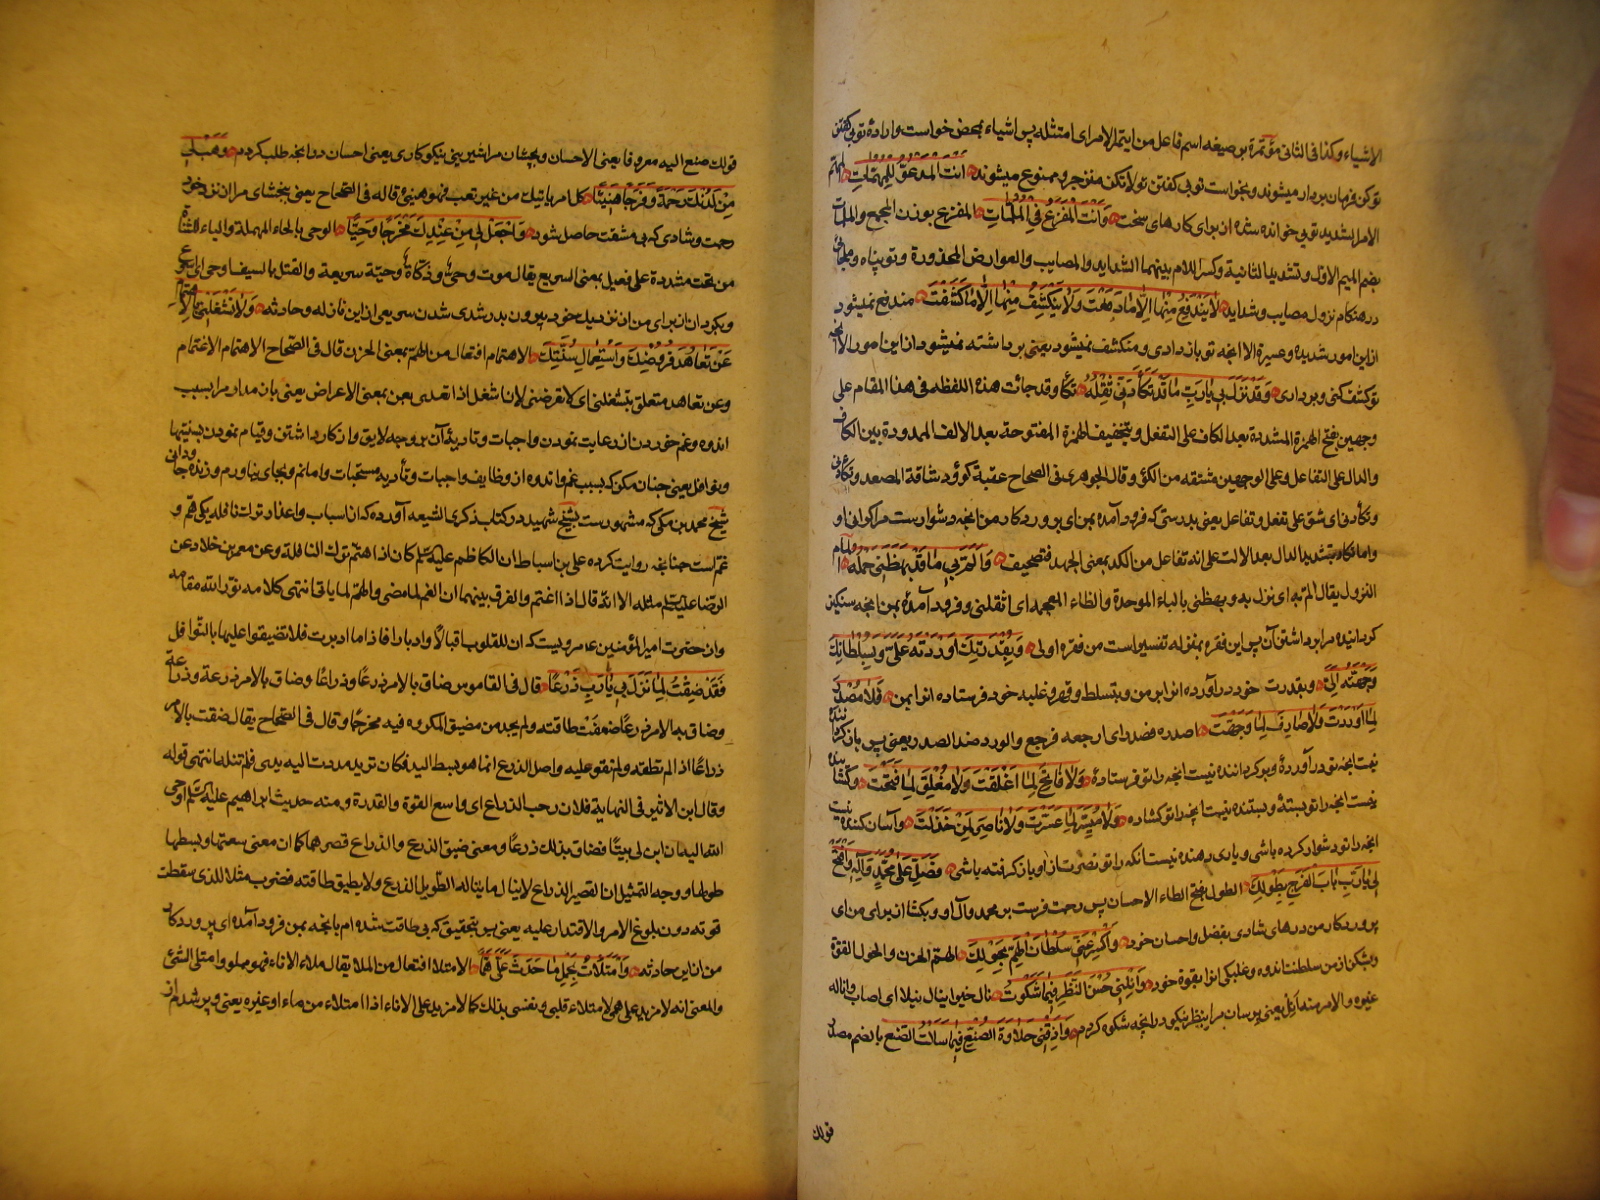 الاشیاء وکذا فی الثانی مؤتمرة بر صیغه اسم فاعل من ایتمر الامر ای امتثله پس اشیاء بمحض خواست و ارادهٔ تو بی گفتن
تو کن فرمان بردار میشوند و بخواست تو بی گفتن تو لا تکن منزجر و ممنوع میشوند انت المدعوّ للمهمّات المهم
الامر الشدید تویی خوانده شده از برای کارهای سخت و انت المفزع فی الملمّات المفزع بوزن المجمع و الملمات
بضم المیم الاوّل و تشدید الثانیة و کسر اللام بینهما الشداید والمصایب والعوارض المحذورة و تو پناه و ملجائی
در هنکام نزول مصایب و شداید لا یندفع منها الا ما دفعت ولا ینکشف منها الا ما کشفت مندفع نمیشود
از این امور شدیده و عسیرة الا انچه تو باز داری و منکشف نمیشود یعنی برداشته نمیشود از این امور الا انچه
تو کشف کنی و برداری و قد نزل بی یا رب ما قد تکأدنی ثقله تکأد قد جائت هذه اللفظه فی هذا المقام علی
وجهین بفتح الهمزة المشددة بعد الکاف علی التفعل و بتخفیف الهمزة المفتوحة بعد الالف الممدودة بین الکاف
والدال علی التفاعل و علی الوجهین مشتقه من الکؤد وقال الجوهری فی الصحاح عقبة کؤود شاقة المصعد و تکأدنی
و تکاءدنی ای شق علی تفعل و تفاعل یعنی بدرستی که فرود آمده بمن ای پروردکار من انچه دشوارست مرا کرانی او
و اما تکادّ بتشدید الدال بعد الالف علی انه تفاعل من الکد بمعنی الجهد فتصحیف و المّ بی ما قد بهظنی حمله المام
النزول یقال المّ به ای نزل به و بهظنی بالباء الموحدة والظاء المعجمه ای اثقلنی و فرود آمده بمن انچه سنکین
کردانیده مرا برداشتن آن پس این فقره بمنزله تفسیر است من فقره اولی و بقدرتک اوردته علیّ و بسلطانک
وجّهته الیّ و بقدرت خود در آورده انرا بر من و بتسلط و قهر و غلبه خود فرستاده انرا بمن فلا مصدر
لما اوردت ولا صارف لما وجّهت اصدره فصدر ای ارجعه فرجع والورد ضد الصدر یعنی پس باز کرداننده
نیست انچه تو در آوردهٔ و بر کرداننده نیست انچه را تو فرستادهٔ ولا فاتح لما اغلقت ولا مغلق لما فتحت و کشاینده
نیست انچه را تو بستهٔ و بستنده نیست انچه را تو کشاده ولا میسّر لما عسّرت ولا ناصر لمن خذلت و آسان کننده نیست
انچه را تو دشوار کرده باشی و یاری دهنده نیست انکه را تو نصرت از او باز کرفته باشی فصلّ علی محمد وآله وافتح
لی یا رب باب الفرج بطولک الطول بفتح الطاء الاحسان پس رحمت فرست بر محمد و آل او و بکشا از برای من ای
پروردکار من درهای شادی بفضل و احسان خود واکسر عنی سلطان الهمّ بحولک الهمّ الحزن والحول القوة
و بشکن از من سلطنت اندوه و غلبکی انرا بقوة خود وانلنی حسن النظر فیما شکوت نال خیرا ینال نیلا ای اصاب و اناله
غیره والامر منه أنل یعنی برسان مرا بنظر نیکو در انچه شکوه کردم واذقنی حلاوة الصّنع فیما سالت الصّنع بالضم مصدر
قولک
قولک صنع الیه معروفا یعنی الاحسان و بچشان مرا شیرینی نیکوکاری یعنی احسان در انچه طلب کردم وهب لی
من لدنک رحمة وفرجا هنیئا کل امر یاتیک من غیر تعب فهو هنیئ قاله فی الصّحاح یعنی ببخشای مرا از نزد خود
رحمت و شادی که بی مشقت حاصل شود واجعل لی من عندک مخرجا وحیّا الوحی بالحاء المهملة والیاء المثناة
من تحت مشددة علی فعیل بمعنی السریع یقال موت وحیّ و ذکاة وحیّة سریعة والقتل بالسیف اوحی ای اسرع
و بکردان از برای من از نزدیک خود بیرون بدر شدی شدن سریعی از این نازله و حادثه ولا تشغلنی بالاهتمام
عن تعاهد فروضک واستعمال سنّتک الاهتمام افتعال من الهمّ بمعنی الحزن قال فی الصّحاح الاهتمام الاغتمام
و عن تعاهد متعلق بتشغلنی ای لا تعرضنی لانا شغل اذا تعدی بعن بمعنی الاعراض یعنی باز مدار مرا بسبب
اندوه و غم خوردن از رعایت نمودن واجبات و تادیهٔ آن بر وجه لایق و از کار داشتن و قیام نمودن بسنتها
و نوافل یعنی چنان مکن که بسبب غم و اندوه از وظایف واجبات و تأدیه مستحبات وامانم و بجای نیاورم و زنده جاودانی
شیخ محمد بن مکی که مشهورست بشیخ شهید در کتاب ذکری الشیعه آورده که از اسباب و اعذار ترک نافله یکی همّ و
غم است چنانچه روایت کرده علی بن اسباط ان الکاظم علیه السلم کان اذا اهتمّ ترک النافلة و عن معمر بن خلاد عن
الرضا علیه السلم مثله الا انه قال اذا اغتم والفرق بینهما ان الغم لما مضی والهمّ لما یاتی انتهی کلامه نوّر الله مقامه
و از حضرت امیر المؤمنین ع مرویست که ان للقلوب اقبالا و ادبارا فاذا ما ادبرت فلا تضیقوا علیها بالنّوافل
فقد ضقت لما نزل بی یا رب ذرعا قال فی القاموس ضاق بالامر ذرعا وذراعا وضاق بالامر ذرعة وذراعة
وضاق به الامر ذرعا ضعفت طاقته ولم یجد من مضیق المکروه فیه مخرجا وقال فی الصّحاح یقال ضقت بالامر
ذراعا اذا لم تطقه ولم تقو علیه واصل الذرع انما هو بسط الید فکان ترید مددت الیه یدی فلم تنله انتهی قوله
وقال ابن الاثیر فی النهایة فلان رحب الذراع ای واسع القوة والقدرة ومنه حدیث ابراهیم علیه السّلم اوحی
الله الیه ان ابن لی بیتا فضاق بذلک ذرعا ومعنی ضیق الذرع والذراع قصرهما کما ان معنی سعتها وبسطها
طولها ووجه التمثیل ان القصیر الذراع لا ینال ما یناله الطّویل الذرع ولا یطیق طاقته فضرب مثلا للذی سقطت
قوته دون بلوغ الامر والاقتدار علیه یعنی پس بتحقیق که بی طاقت شده ام بانچه بمن فرود آمده ای پروردکار
من از این حادثه وامتلأت بحمل ما حدث علیّ همّا الامتلا افتعال من الملا یقال ملاء الاناء فهو مملو وامتلی الشئ
والمعنی انه لا مزید علی همی لامتلاء قلبی ونفسی بذلک کما لا مزید علی الاناء اذا امتلاء من ماء او غیره یعنی و پر شدم از